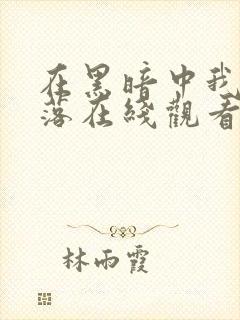 在黑暗中我
落在线觀看
林雨霞